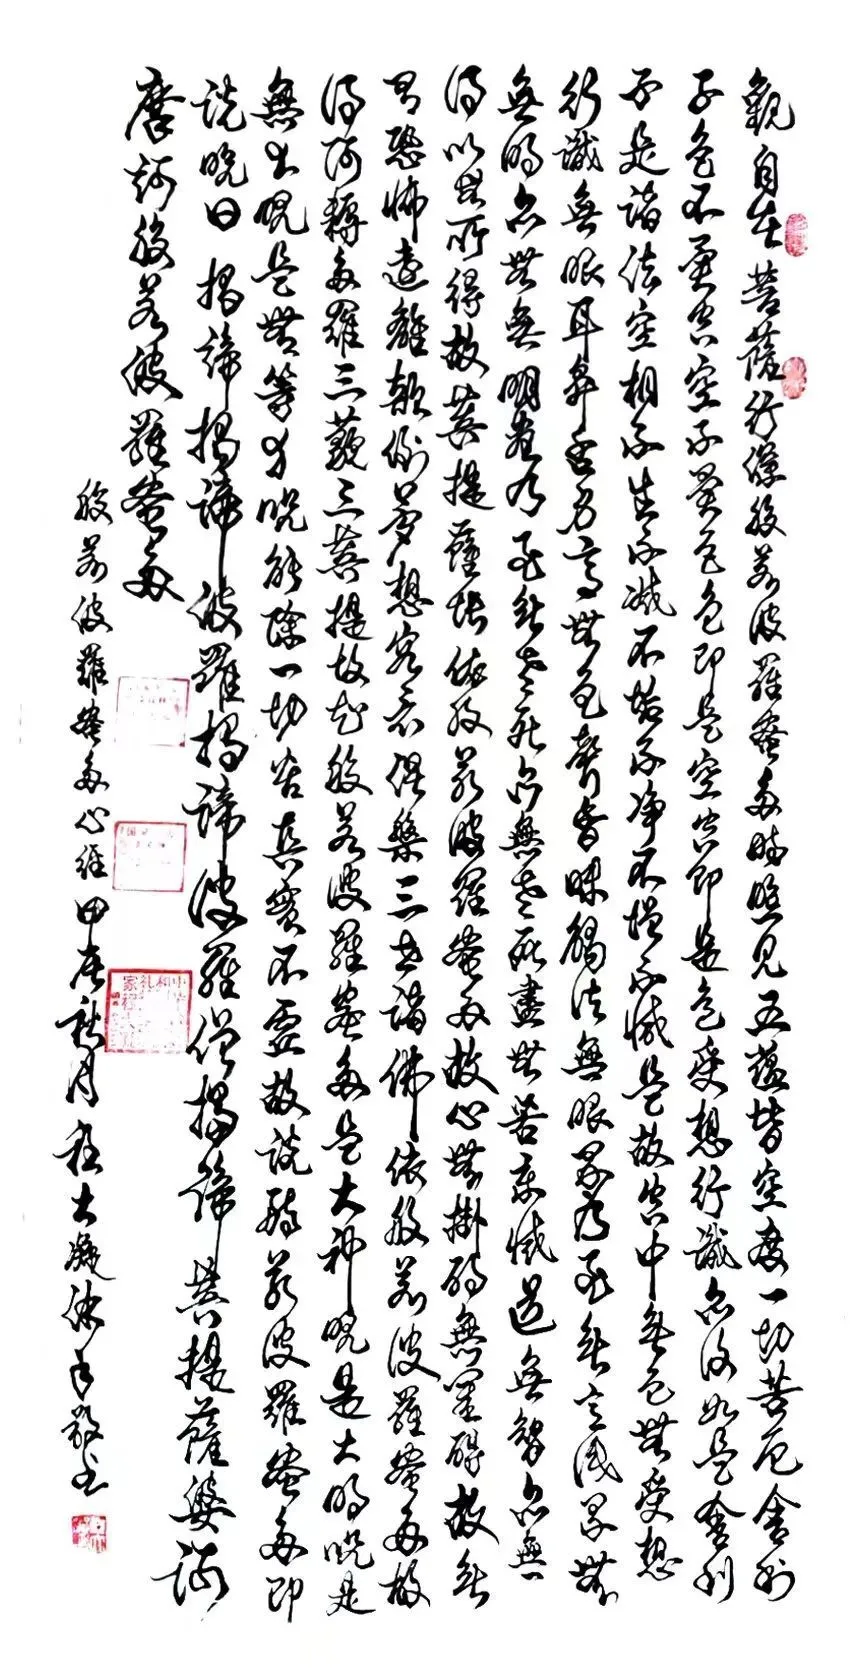 觀自在菩薩行深般若波羅蜜多時照見五蘊皆空度一切苦厄舍利
子色不異空空不異色色即是空空即是色受想行識亦復如是舍利
子是諸法空相不生不滅不垢不淨不增不減是故空中無色無受想
行識無眼耳鼻舌身意無色聲香味觸法無眼界乃至無意識界無
無明亦無無明盡乃至無老死亦無老死盡無苦集滅道無智亦無
得以無所得故菩提薩埵依般若波羅蜜多故心無掛礙無罣礙故無
有恐怖遠離顛倒夢想究竟涅槃三世諸佛依般若波羅蜜多故
得阿耨多羅三藐三菩提故知般若波羅蜜多是大神呪是大明呪是
無上呪是無等等呪能除一切苦真實不虛故說般若波羅蜜多即
說呪曰揭諦揭諦波羅揭諦波羅僧揭諦菩提薩婆訶
摩訶般若波羅蜜多
般若波羅蜜多心經 秋月程大凝沐手敬書